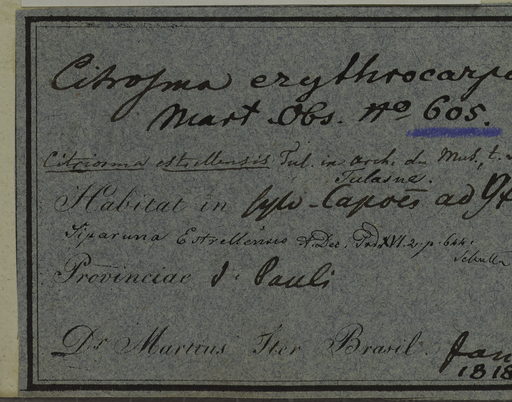 Citrosma erythrocarpa
Mart. Obs. No 605.
Citriosma estrellensis Tul. in arch. du Mus., t.
Tulasne.
Habitat in sylv. Capoẽs ad
Siparuna Estrellensis A. Dec. Prod XVI. 2. p. 644.
Provinciae S. Pauli
Dr Martius Iter Brasil. Jan
1818